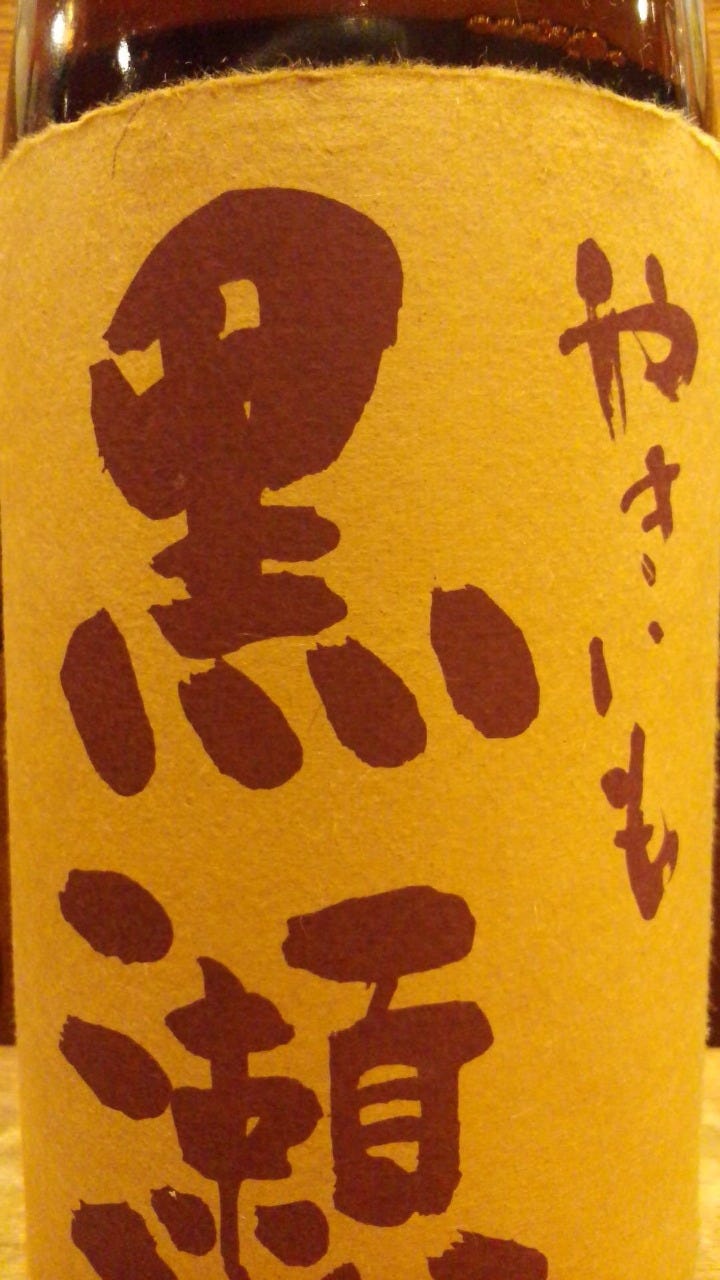 やきいも
黒瀬